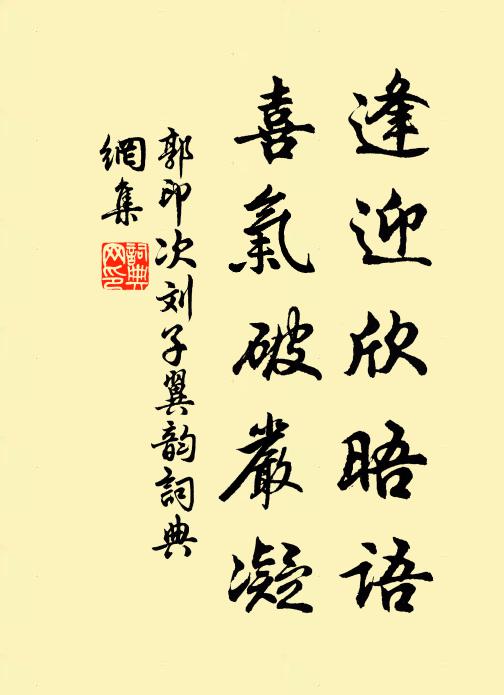 逢迎欣晤语
喜氣破嚴凝
郭印次刘子翼韵詞典
網集
詞典网印